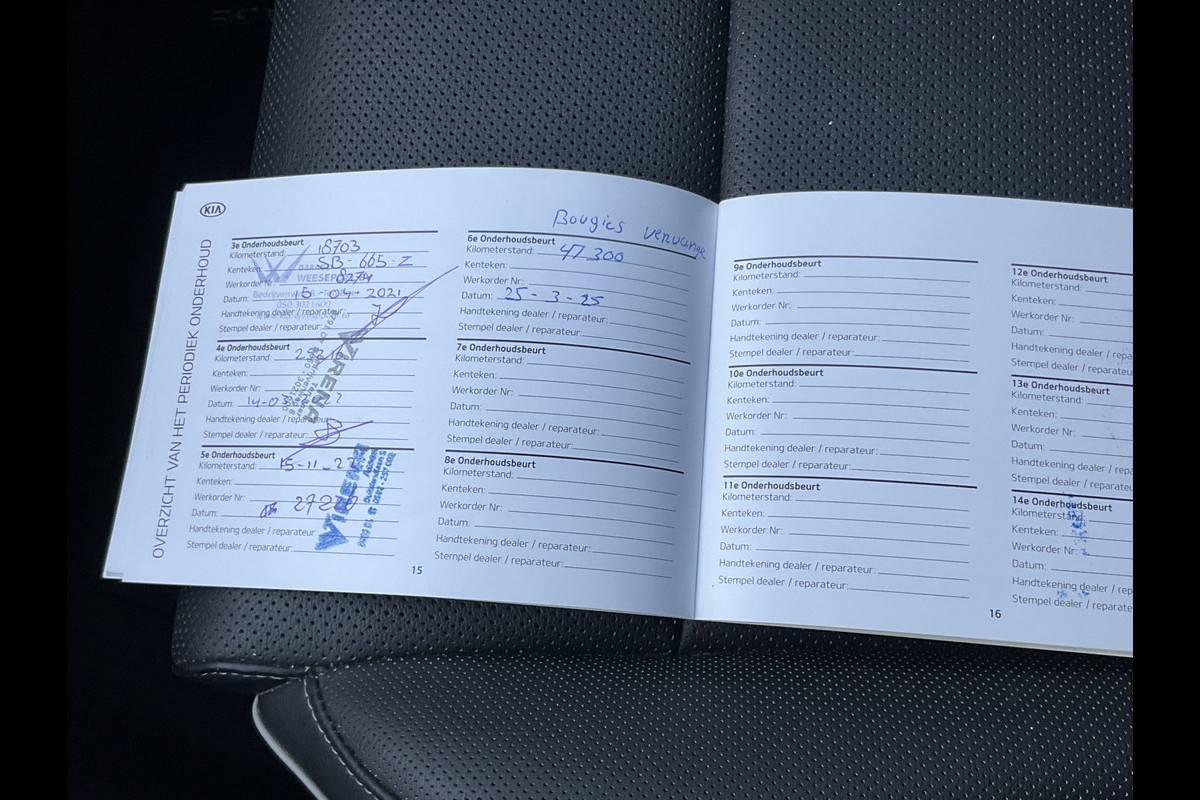 KIA
OVERZICHT VAN HET PERIODIEK ONDERHOUD
3e Onderhoudsbeurt
Kilometerstand: 18703
Kenteken: SB-665-Z
Werkorder Nr: 8274
Datum: 15-04-2021
Handtekening dealer / reparateur:
Stempel dealer / reparateur:
4e Onderhoudsbeurt
Kilometerstand:
Kenteken:
Werkorder Nr:
Datum: 14-03
Handtekening dealer / reparateur:
Stempel dealer / reparateur:
VRENA
5e Onderhoudsbeurt
Kilometerstand: 15-11-22
Kenteken:
Werkorder Nr:
Datum:
Handtekening dealer / reparateur:
Stempel dealer / reparateur:
15
Bougies
6e Onderhoudsbeurt
Kilometerstand: 47300
Kenteken:
Werkorder Nr:
Datum: 25-3-25
Handtekening dealer / reparateur:
Stempel dealer / reparateur:
7e Onderhoudsbeurt
Kilometerstand:
Kenteken:
Werkorder Nr:
Datum:
Handtekening dealer / reparateur:
Stempel dealer / reparateur:
8e Onderhoudsbeurt
Kilometerstand:
Kenteken:
Werkorder Nr:
Datum:
Handtekening dealer / reparateur:
Stempel dealer / reparateur:
9e Onderhoudsbeurt
Kilometerstand:
Kenteken:
Werkorder Nr:
Datum:
Handtekening dealer / reparateur:
Stempel dealer / reparateur:
10e Onderhoudsbeurt
Kilometerstand:
Kenteken:
Werkorder Nr:
Datum:
Handtekening dealer / reparateur:
Stempel dealer / reparateur:
11e Onderhoudsbeurt
Kilometerstand:
Kenteken:
Werkorder Nr:
Datum:
Handtekening dealer / reparateur:
Stempel dealer / reparateur:
12e Onderhoudsbeurt
Kilometerstand:
Kenteken:
Werkorder Nr:
Datum:
Handtekening dealer / repa
Stempel dealer / reparate
13e Onderhoudsbeurt
Kilometerstand:
Kenteken:
Werkorder Nr:
Datum:
Handtekening dealer / rep
Stempel dealer / reparate
14e Onderhoudsbeurt
Kilometerstand:
Kenteken:
Werkorder Nr:
Datum:
Handtekening dealer / rep
Stempel dealer / reparate
16